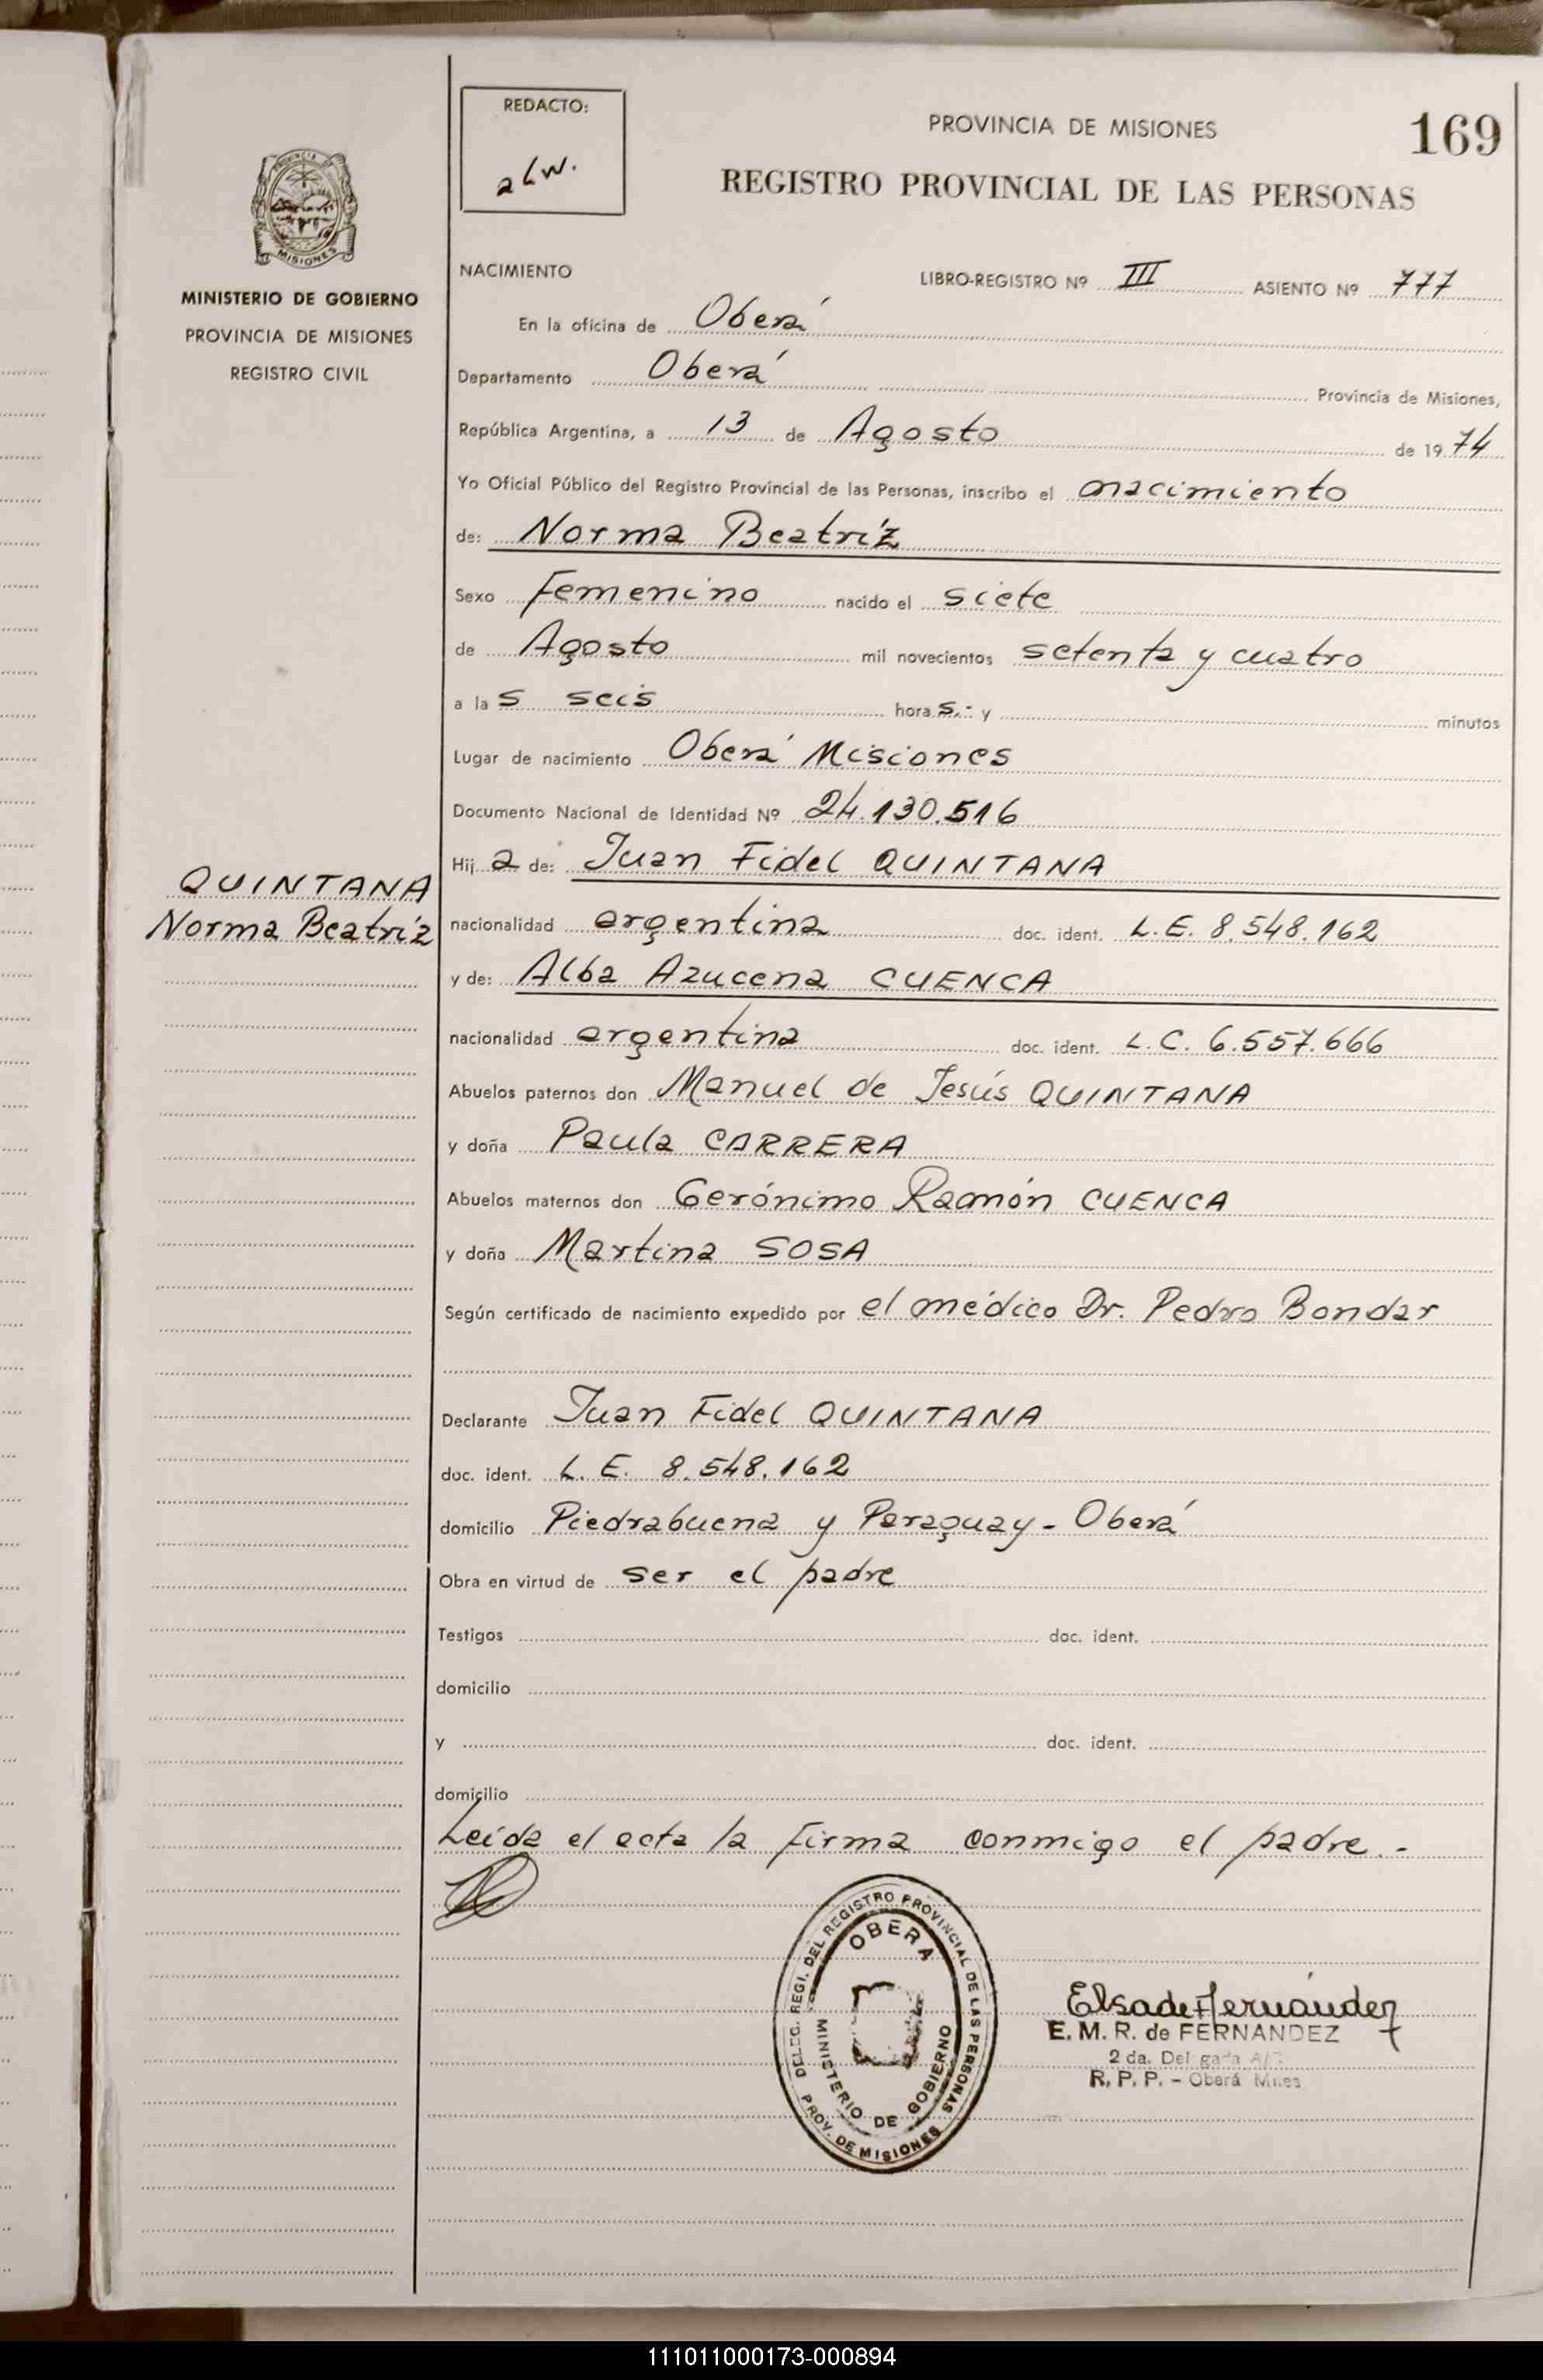 REDACTO:
aLw.
PROVINCIA DE MISIONES
169
REGISTRO PROVINCIAL DE LAS PERSONAS
PROVINCIA DE
MISIONES
MINISTERIO DE GOBIERNO
PROVINCIA DE MISIONES
REGISTRO CIVIL
NACIMIENTO LIBRO-REGISTRO Nº III ASIENTO Nº 777
En la oficina de Oberá
Departamento Oberá Provincia de Misiones,
República Argentina, a 13 de Agosto de 1974
Yo Oficial Público del Registro Provincial de las Personas, inscribo el nacimiento
de: Norma Beatríz
Sexo Femenino nacido el siete
de Agosto mil novecientos setenta y cuatro
a las seis horas.- y minutos
Lugar de nacimiento Oberá Misiones
Documento Nacional de Identidad Nº 24.130.516
Hija de: Juan Fidel QUINTANA
QUINTANA
Norma Beatríz
nacionalidad argentina doc. ident. L.E. 8.548.162
y de: Alba Azucena CUENCA
nacionalidad argentina doc. ident. L.C. 6.557.666
Abuelos paternos don Manuel de Jesús QUINTANA
y doña Paula CARRERA
Abuelos maternos don Gerónimo Ramón CUENCA
y doña Martina SOSA
Según certificado de nacimiento expedido por el médico Dr. Pedro Bondar
Declarante Juan Fidel QUINTANA
doc. ident. L.E. 8.548.162
domicilio Piedrabuena y Paraguay - Oberá
Obra en virtud de ser el padre
Testigos doc. ident.
domicilio
y doc. ident.
domicilio
Leída el acta la firma conmigo el padre.-
DELEG. REGI. DEL REGISTRO PROVINCIAL DE LAS PERSONAS
OBERA
MINISTERIO DE GOBIERNO
PROV. DE MISIONES
Elsa de Fernández
E. M. R. de FERNANDEZ
2 da. Delegada
R. P. P. - Oberá Mnes
111011000173-000894